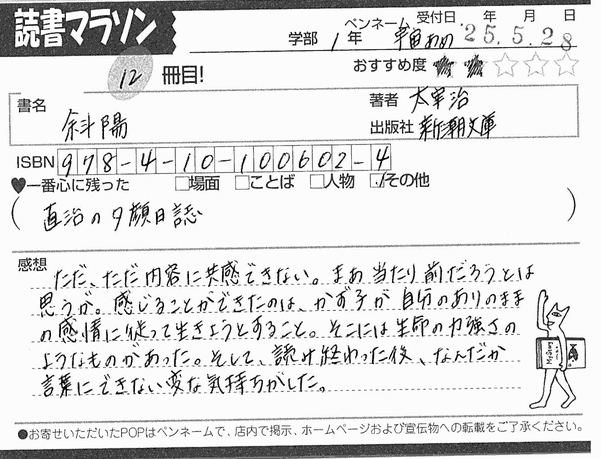 読書マラソン
学部 1年 ペンネーム 宇宙あめ 受付日 年 月 日
25.5.28
12 冊目!
おすすめ度 ★★☆☆☆
書名 斜陽
著者 太宰治
出版社 新潮文庫
ISBN 978-4-10-100602-4
♥一番心に残った □場面 □ことば □人物 ☑その他
(直治の夕顔日誌)
感想
ただ、ただ内容に共感できない。まあ当たり前だろうとは
思うが。感じることができたのは、かず子が自分のありのまま
の感情に従って生きようとすること。そこには生命の力強さの
ようなものがあった。そして、読み終わった後、なんだか
言葉にできない変な気持ちがした。
●お寄せいただいたPOPはペンネームで、店内で掲示、ホームページおよび宣伝物への転載をご了承ください。